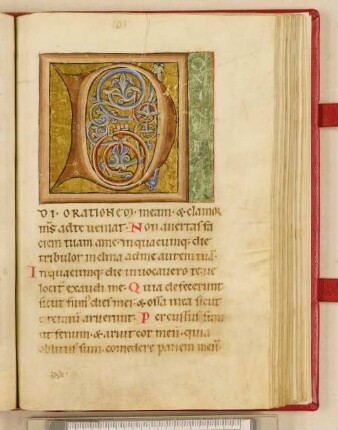 D
DI · ORATIONEM · meam · & clamor
m̄s ad te ueniat · Non auertas fa
ciem tuam a me · in quacumq; die
tribulor inclina ad me aurem tuā ·
In quacumq; die inuocauero te ue
locit̄ exaudi me · Quia defecerunt
sicut fum̄ dies mei · & ossa mea sicut
aruerunt · Percussus sum
ut fenum · & aruit cor meū · quia
oblitus sum comedere panem meū